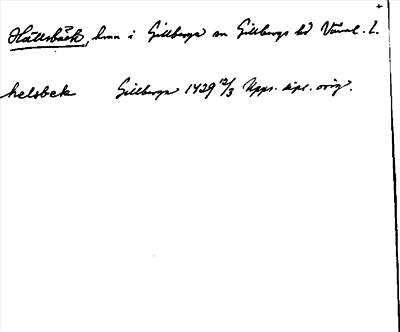 Hällsbäck, hmn i Gillberga sn Gillbergs hd Värml. l.
helsbek Gillberga 1429 12/3 Upps. dipl. orig.